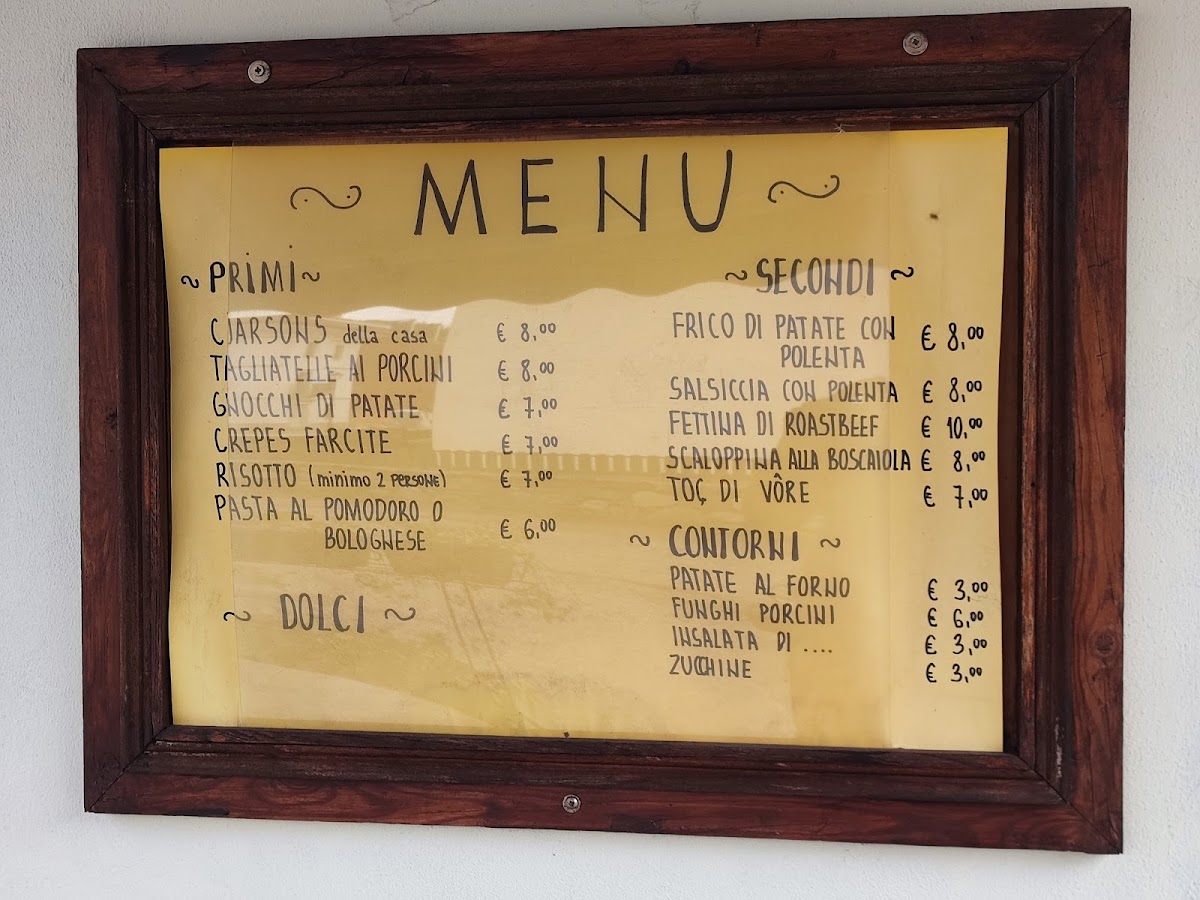 MENU
~ PRiMi ~
CJARSONS della casa € 8,00
TAGLIATELLE AI PORCINI € 8,00
GNOCCHI DI PATATE € 7,00
CREPES FARCITE € 7,00
RISOTTO (minimo 2 PERSONE) € 7,00
PASTA AL POMODORO O
BOLOGNESE € 6,00
~ DOLCI ~
~ SECONDI ~
FRICO DI PATATE CON
POLENTA € 8,00
SALSICCIA CON POLENTA € 8,00
FETTINA DI ROASTBEEF € 10,00
SCALOPPINA ALLA BOSCAIOLA € 8,00
TOÇ DI VÔRE € 7,00
~ CONTORNI ~
PATATE AL FORNO € 3,00
FUNGHI PORCINI € 6,00
INSALATA DI .... € 3,00
ZUCCHINE € 3,00